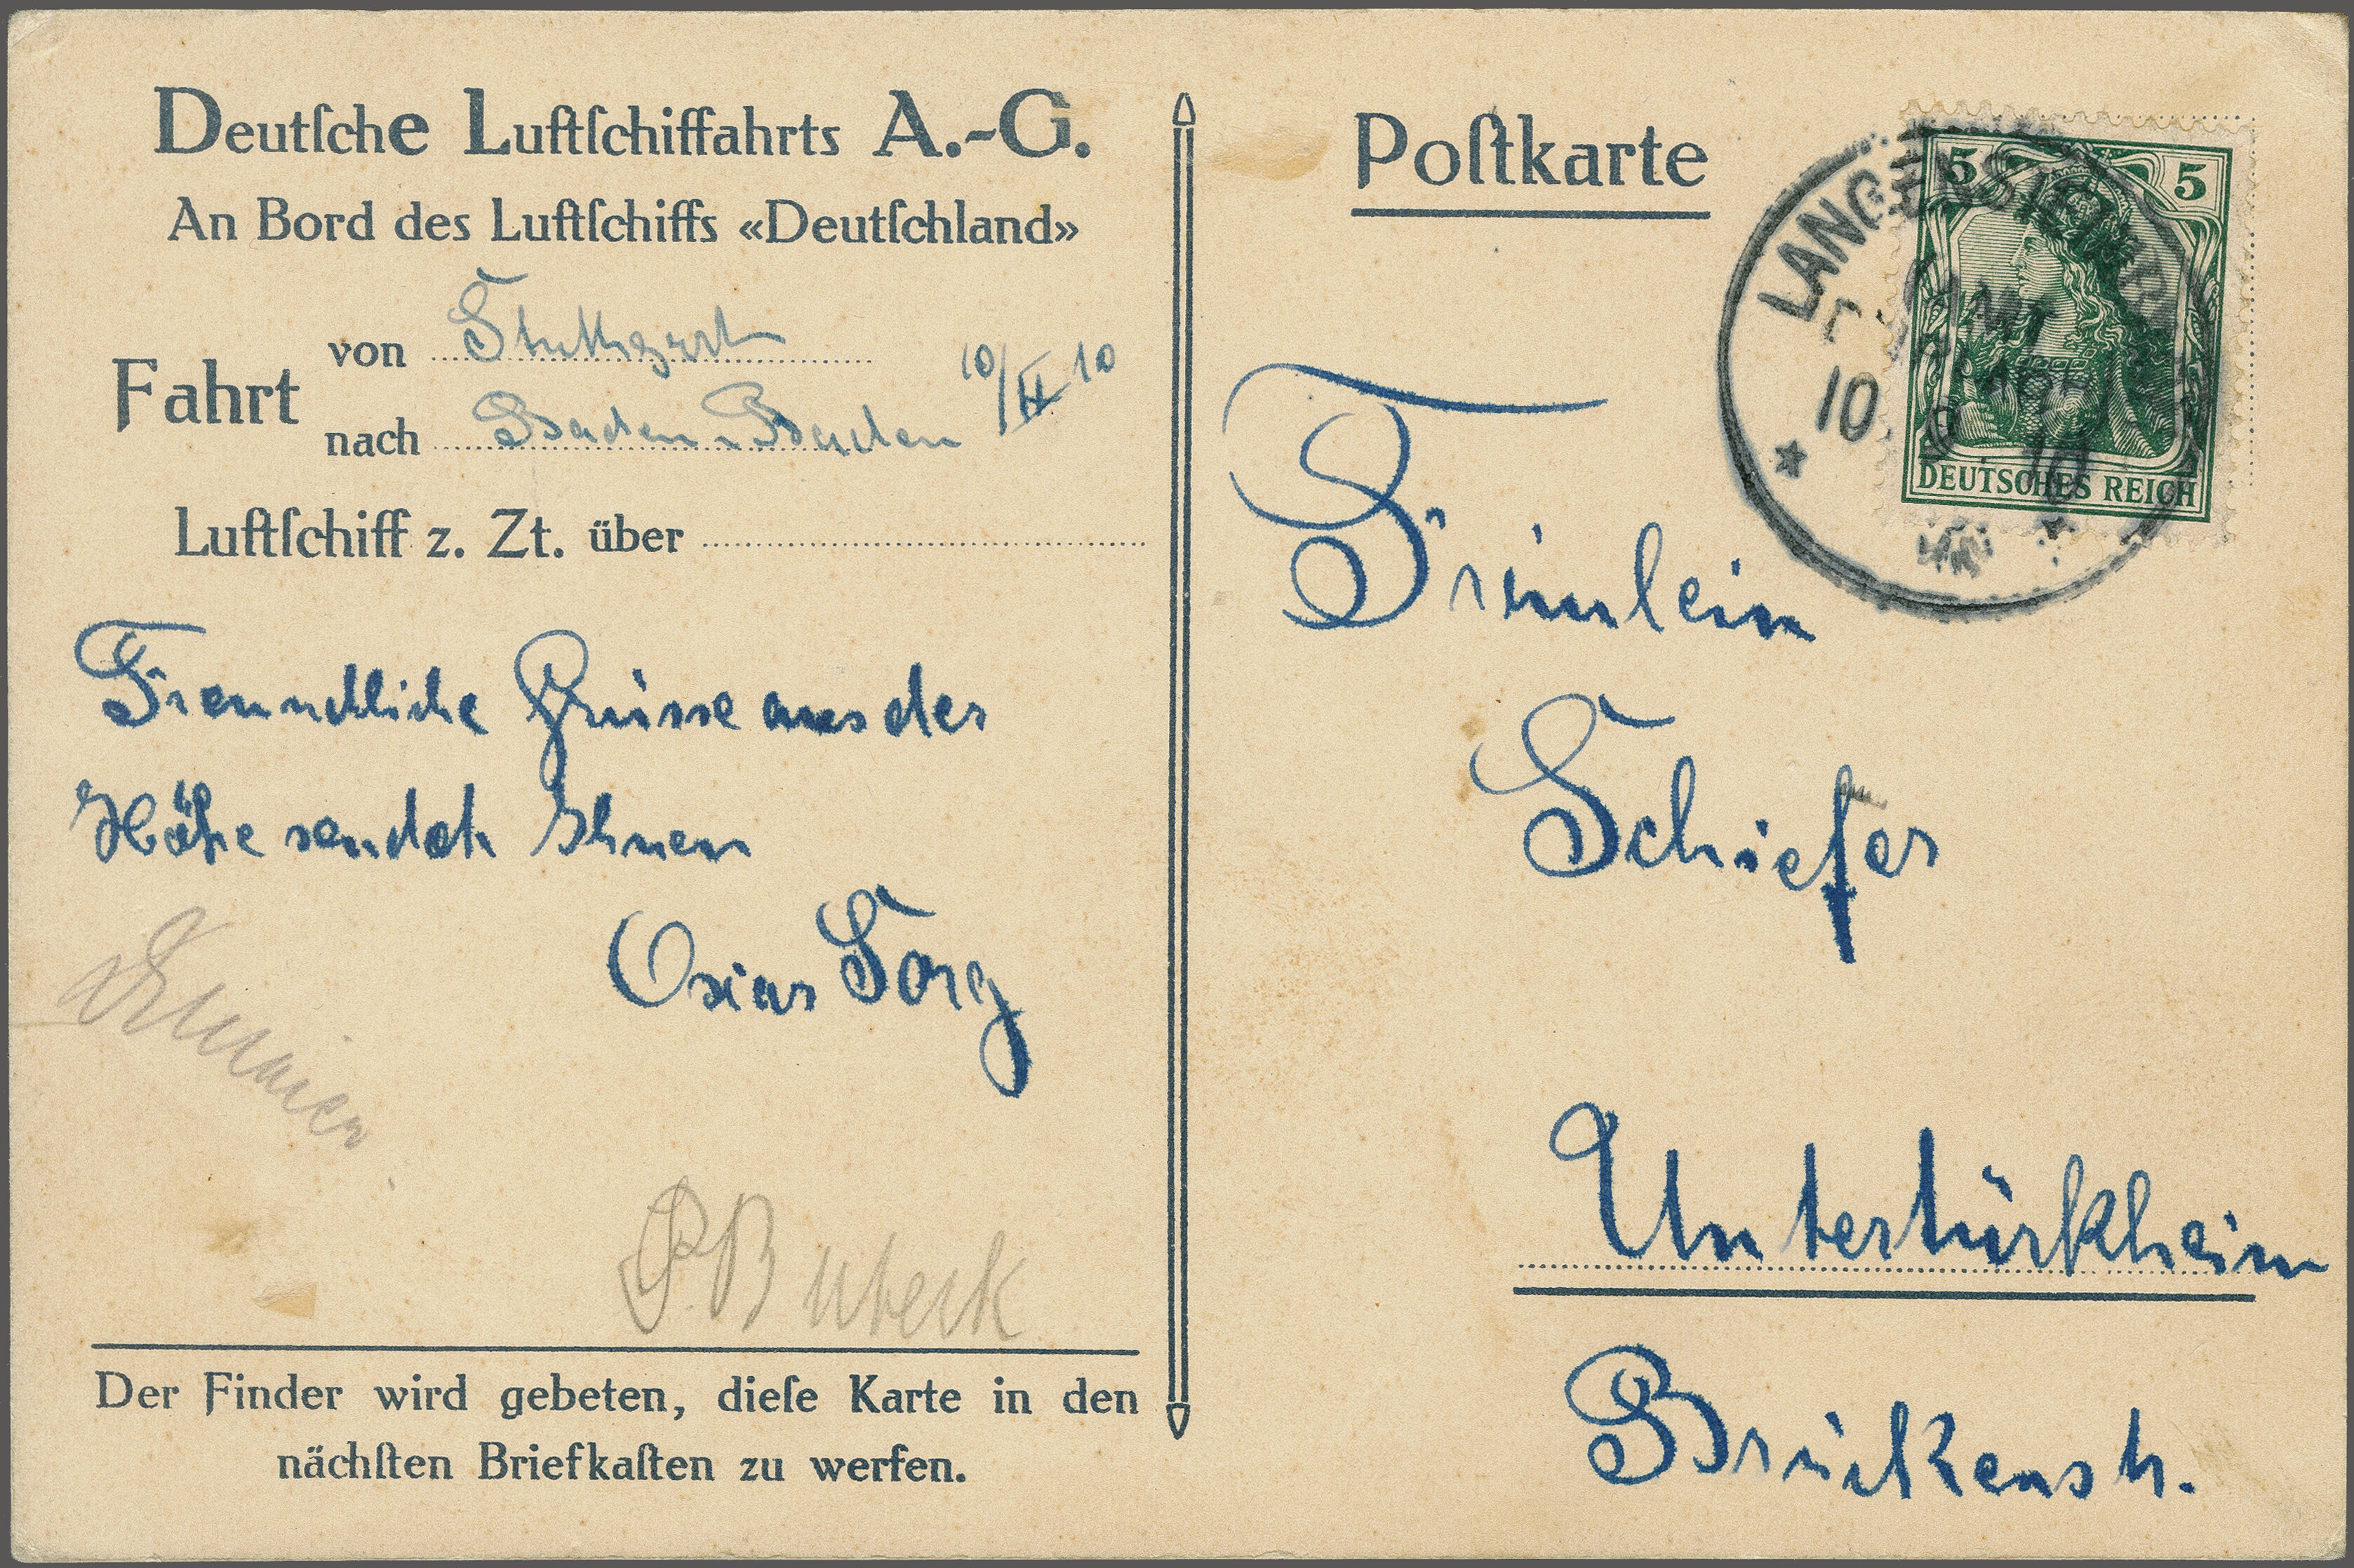 Deutſche Luftſchiffahrts A.-G.
An Bord des Luftſchiffs «Deutſchland»
Fahrt
von Stuttgart
nach Baden-Baden
10/IX 10
Luftſchiff z. Zt. über
Freundliche Grüsse aus der
Höhe sendet Ihnen
Oskar Sorg
P. Bubeck
Der Finder wird gebeten, dieſe Karte in den
nächſten Briefkaſten zu werfen.
Poſtkarte
5 5
DEUTSCHES REICH
10. 9. 10
Fräulein
Schiefer
Untertürkheim
Brückenstr.